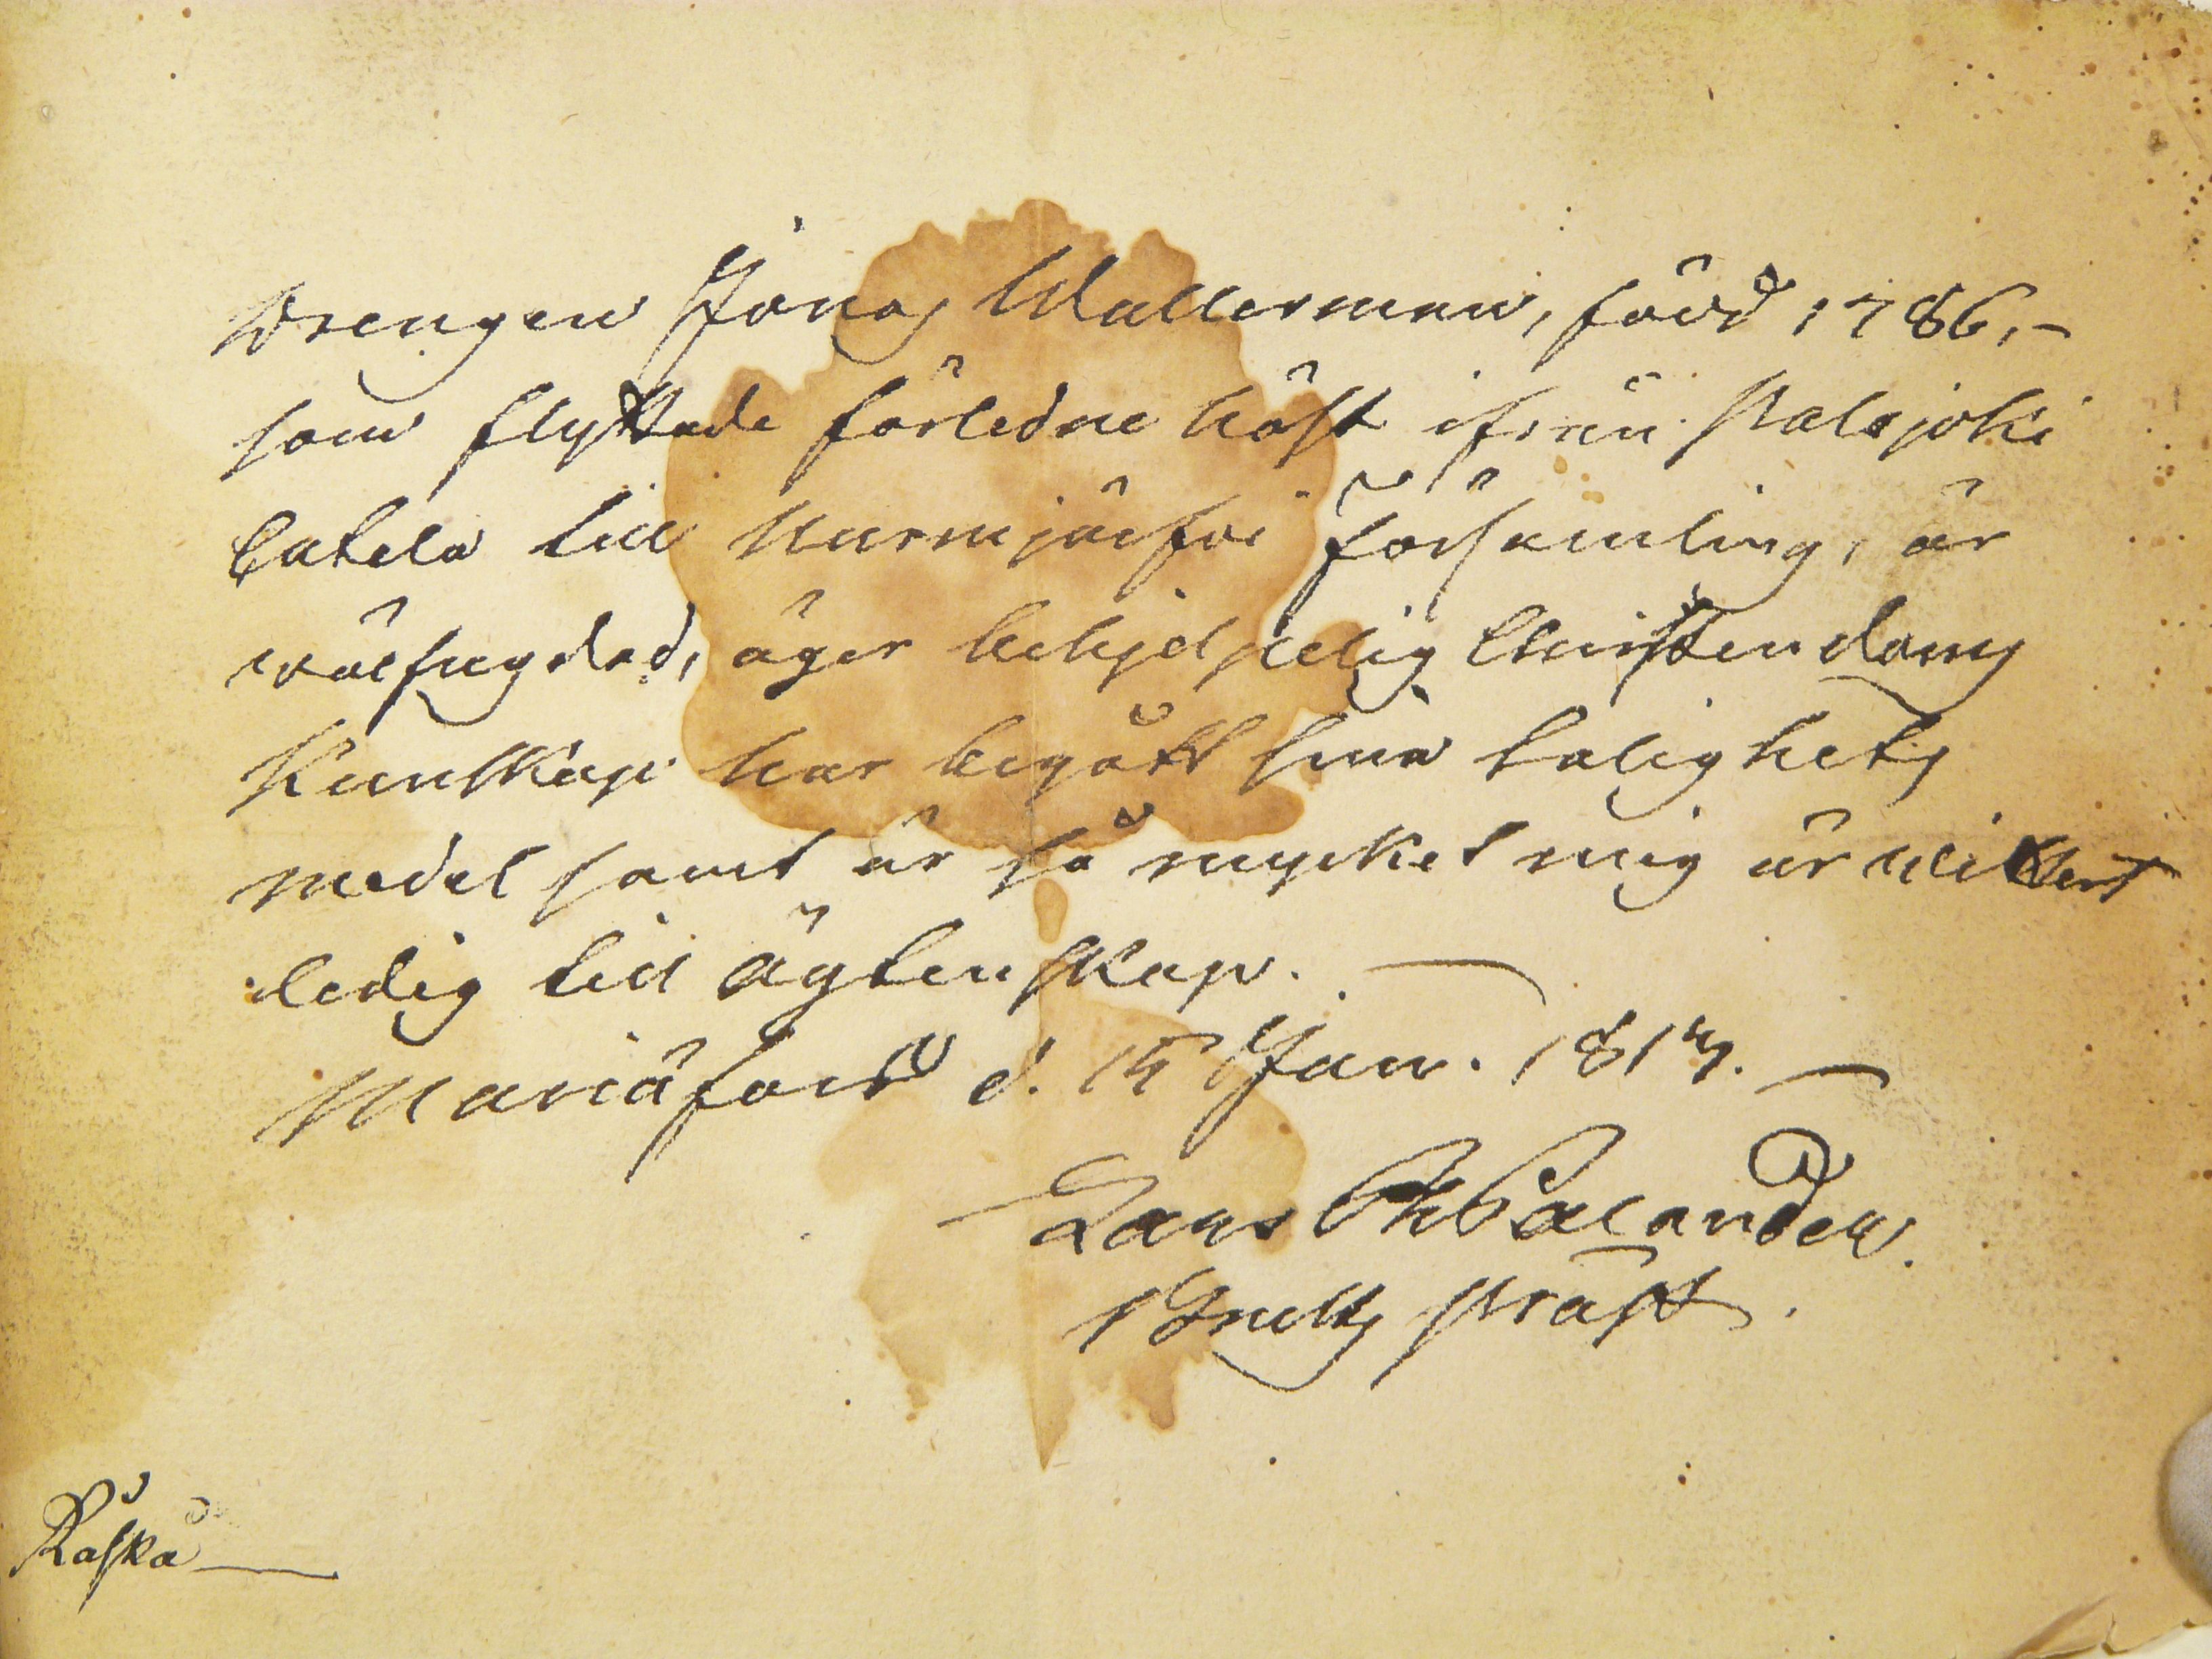 Drengen Jonas Wallerman, född 1786,-
som flyttade förledne höst ifrån Palojoki
Catela till Nurmijärfvi Församling, är
välfrägdad, äger behjelpelig Christendoms
Kunskap har begått sina salighets
medel samt är så myket mig är vitterl
ledig till ägtenskap. —
Mariäfors d. 15 Jan. 1817. —
Lars Palander.
Bruks präst.
Räskä